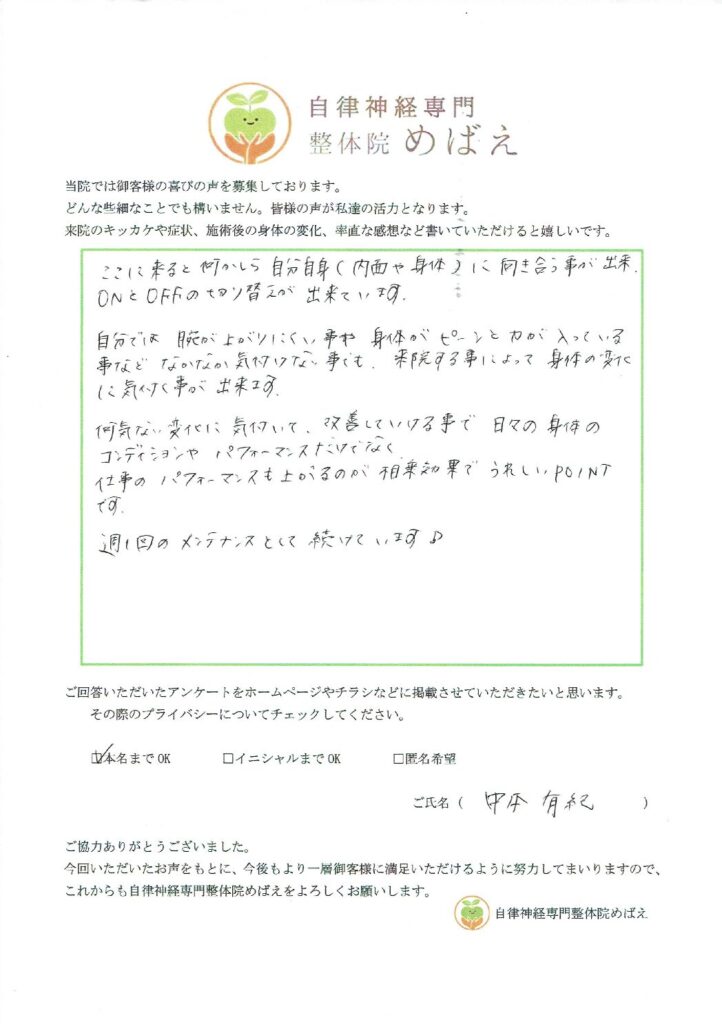 自律神経専門
整体院 めばえ
当院では御客様の喜びの声を募集しております。
どんな些細なことでも構いません。皆様の声が私達の活力となります。
来院のキッカケや症状、施術後の身体の変化、率直な感想など書いていただけると嬉しいです。
ここに来ると何かしら自分自身(内面や身体)に向き合う事が出来、
ONとOFFの切り替えが出来ています。
自分では腕が上がりにくい事や身体がピーンと力が入っている
事などなかなか気付けない事でも、来院する事によって身体の変化
に気付く事が出来ます。
何気ない変化に気付いて、改善していける事で日々の身体の
コンディションやパフォーマンスだけでなく
仕事のパフォーマンスも上がるのが相乗効果でうれしいPOINT
です。
週1回のメンテナンスとして続けています♪
ご回答いただいたアンケートをホームページやチラシなどに掲載させていただきたいと思います。
その際のプライバシーについてチェックしてください。
☑本名までOK □イニシャルまでOK □匿名希望
ご氏名( 中本 有紀 )
ご協力ありがとうございました。
今回いただいたお声をもとに、今後もより一層御客様に満足いただけるように努力してまいりますので、
これからも自律神経専門整体院めばえをよろしくお願いします。
自律神経専門整体院めばえ